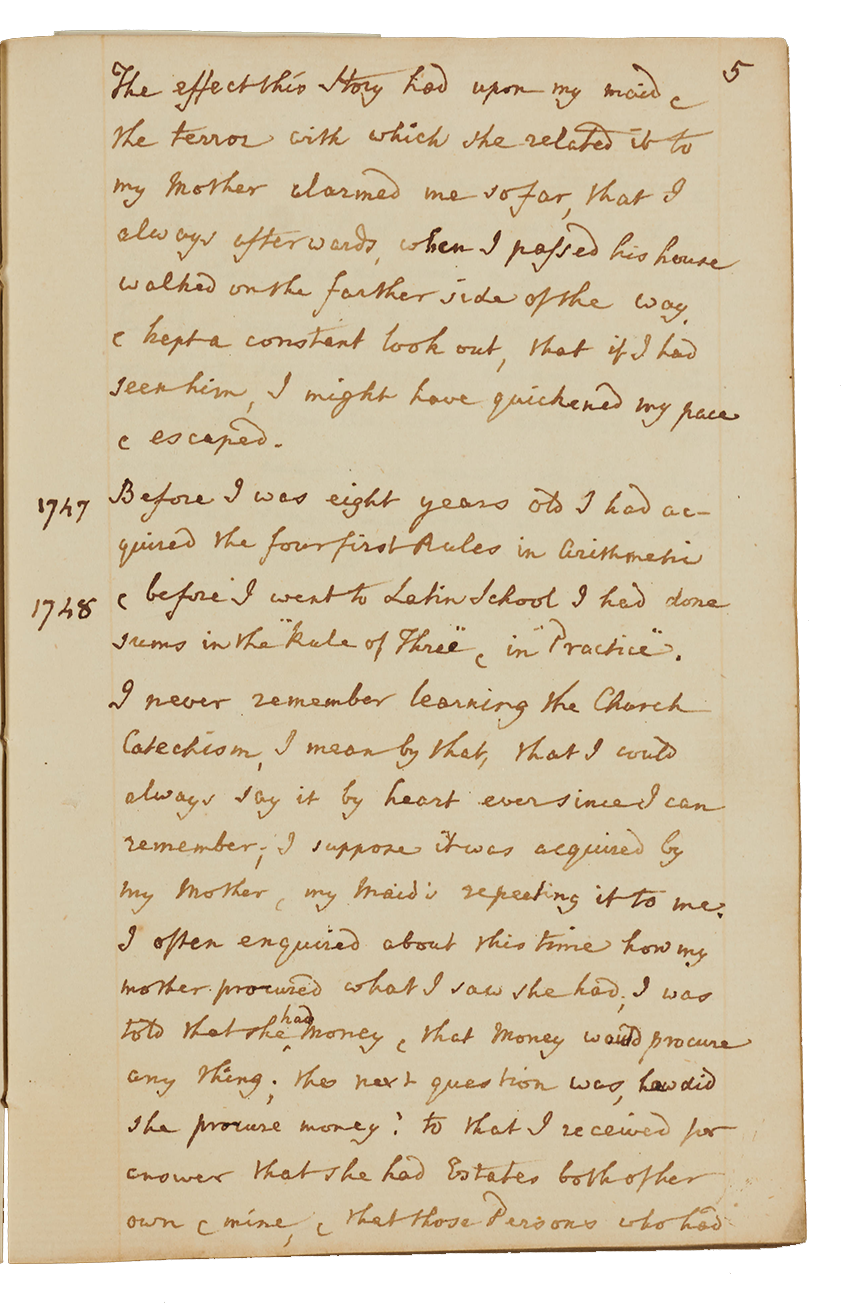 5
The effect this Story had upon my maid &
the terror with which she related it to
my Mother alarmed me so far, that I
always afterwards, when I passed his house
walked on the farther side of the way,
& kept a constant look out, that if I had
seen him, I might have quickened my pace
& escaped.
1747 Before I was eight years old I had ac-
quired the four first Rules in Arithmetic
1748 & before I went to Latin School I had done
sums in the "Rule of Three" & in "Practice".
I never remember learning the Church
Catechism, I mean by that, that I could
always say it by heart ever since I can
remember; I suppose it was acquired by
my Mother & my Maid's repeating it to me.
I often enquired about this time how my
mother procured what I saw she had; I was
told that she had Money & that Money would procure
any thing; the next question was, how did
she procure money? to that I received for
answer that she had Estates both of her
own & mine, & that those Persons who had